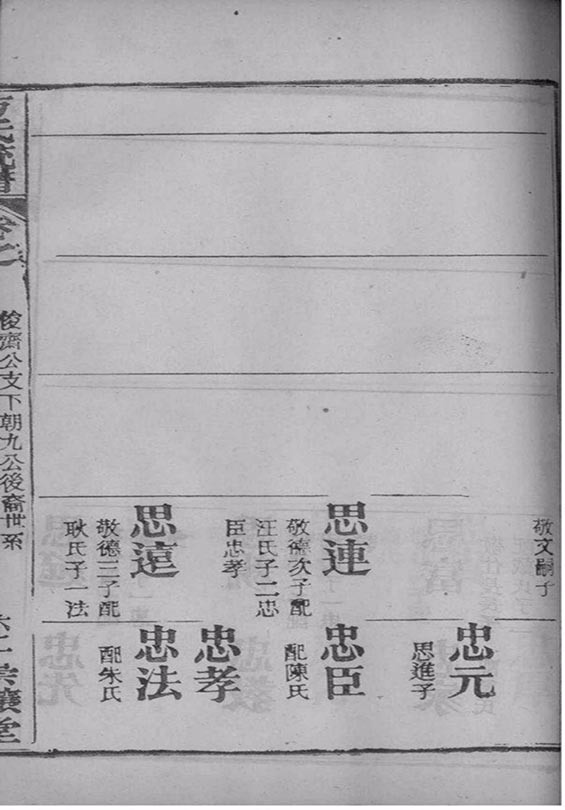 敬文嗣子
思連
敬德次子配
汪氏子二忠
臣忠孝
思遠
敬德三子配
耿氏子一法
忠元
思進子
忠臣
配陳氏
忠孝
忠法
配朱氏
氏統譜
俊齋公支下朝九公後裔世系